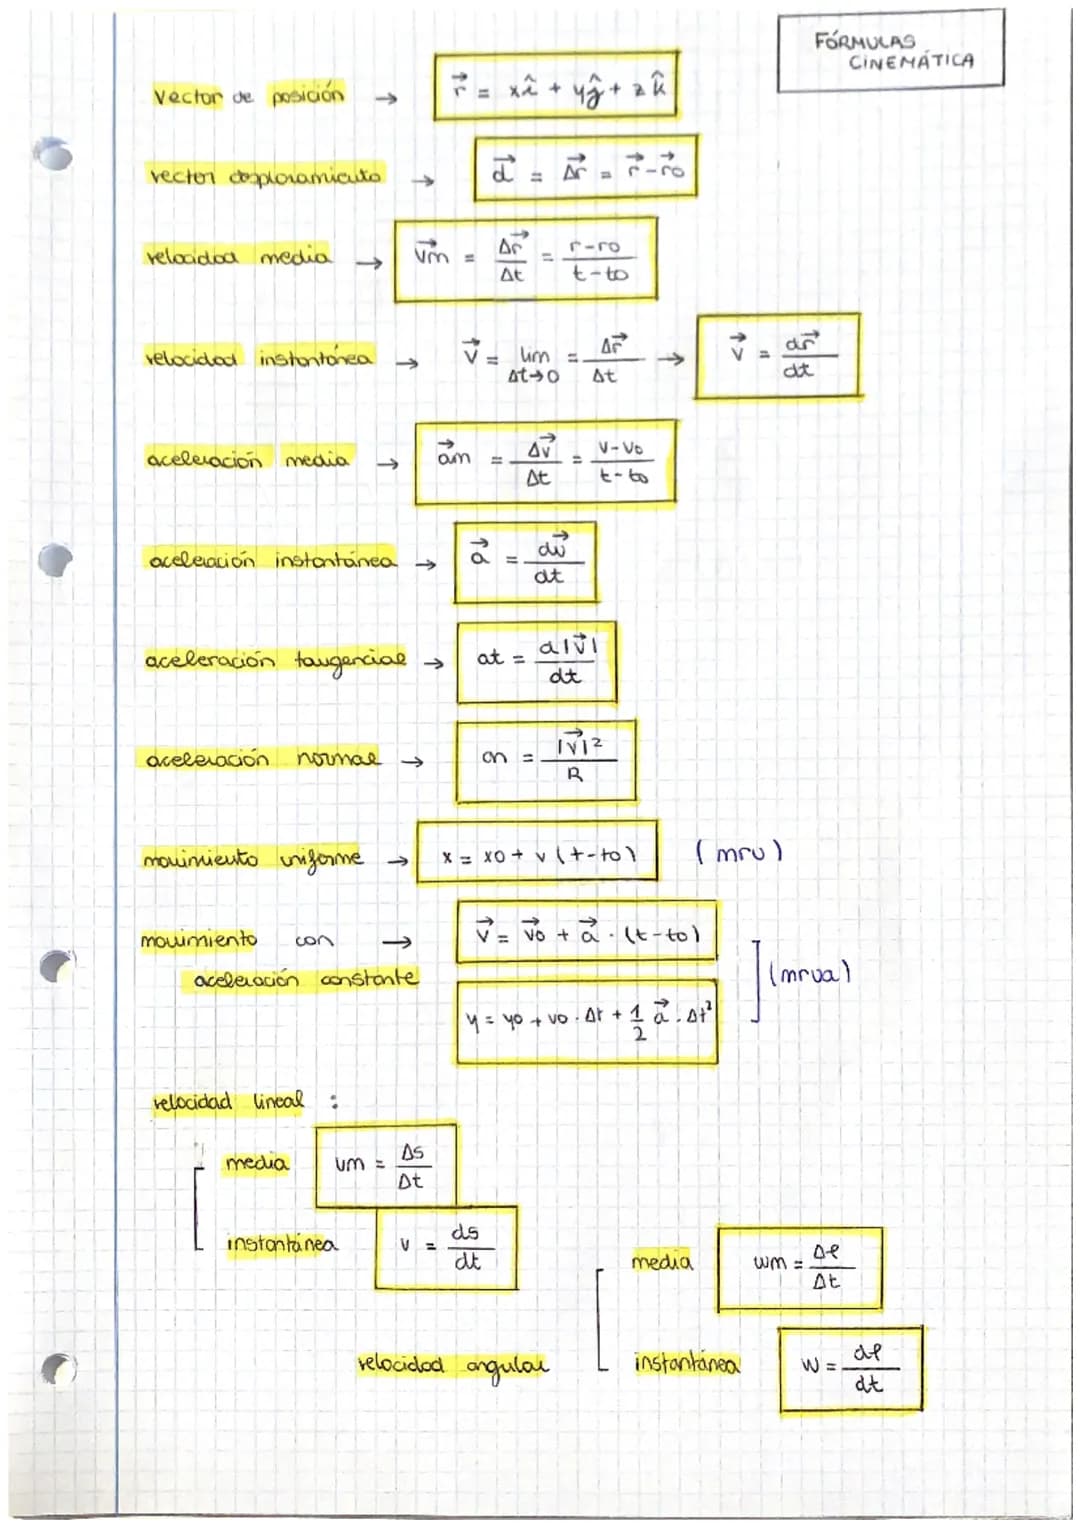 FÓRMULAS
CINEMÁTICA
Vector de posición → r⃗ = xî + yĵ + zk̂
vector desplazamiento → d⃗ = Δr⃗ = r⃗ - r⃗o
velocidad media → v⃗m = Δr⃗/Δt = r-ro/t-to
velocidad instantánea → v⃗ = lim Δt→0 = Δr⃗/Δt → v⃗ = dr⃗/dt
aceleración media → a⃗m = Δv⃗/Δt = v-vo/t-to
aceleración instantánea → a⃗ = dv⃗/dt
aceleración tangencial → at = d|v⃗|/dt
aceleración normal → an = |v⃗|²/R
movimiento uniforme → x = xo + v (t-to) (mru)
movimiento con → v⃗ = v⃗o + a⃗ · (t-to)
aceleración constante (mrua)
y = yo + vo · Δt + 1/2 a⃗ · Δt²
velocidad lineal :
media vm = Δs/Δt
instantánea v = ds/dt
media wm = Δφ/Δt
velocidad angular instantánea w = dφ/dt